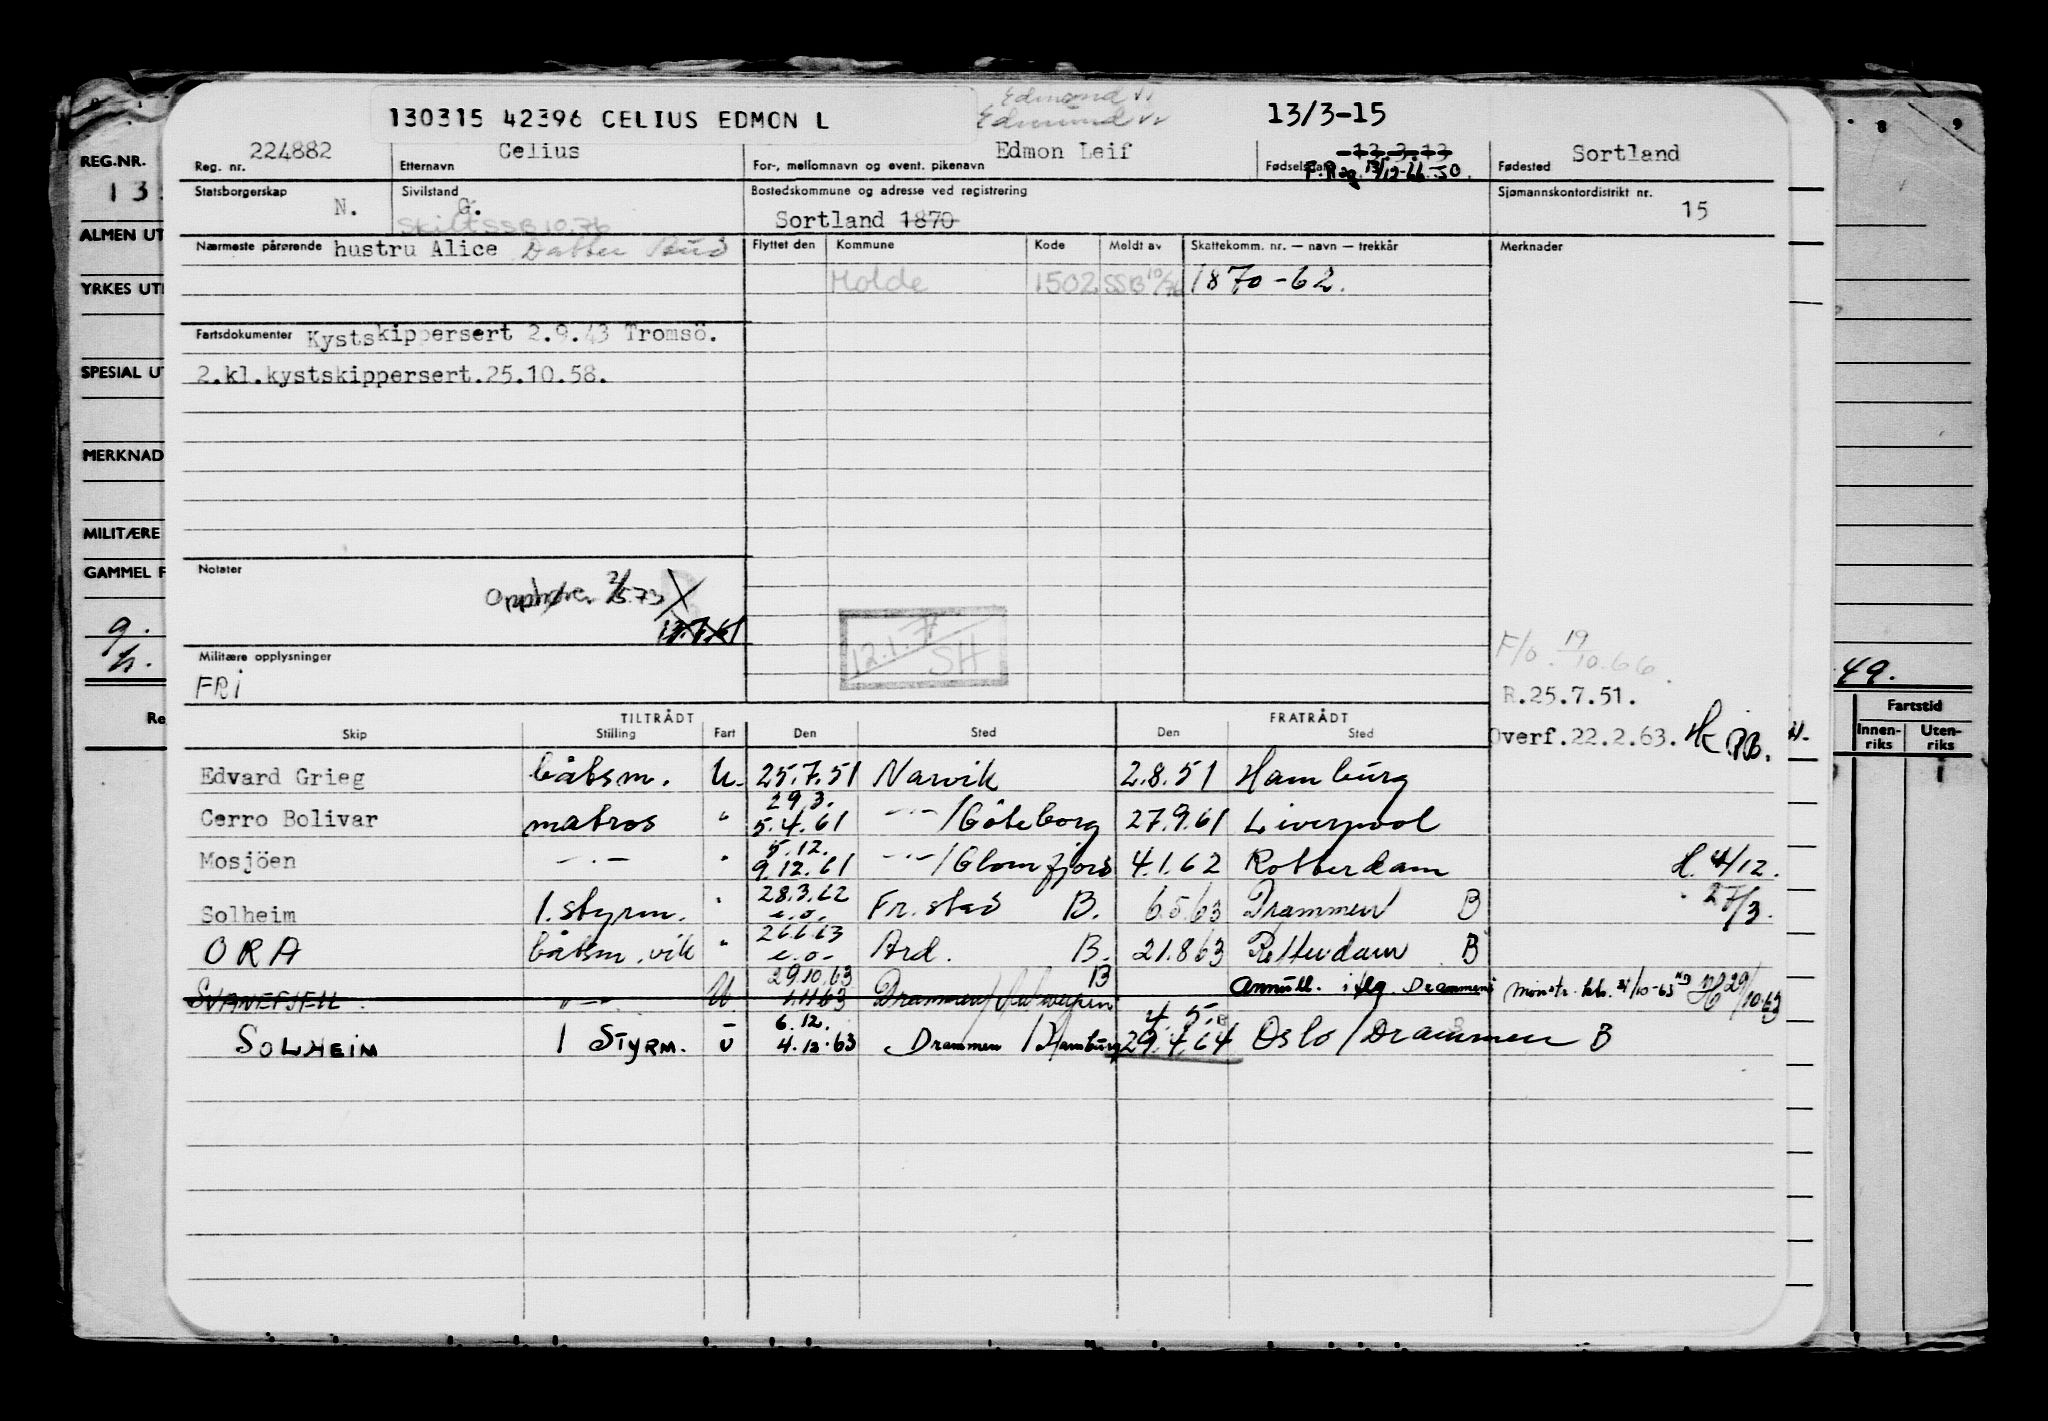 Edmond
130315 42396 CELIUS EDMON L Edmund 13/3-15
REG.NR. Reg. nr. 224882 Etternavn Celius For-, mellomnavn og event. pikenavn Edmon Leif Fødselsdato 13.3.13 Fødested Sortland 8 9
F.Reg. 13/12-66.SO.
Statsborgerskap N. Sivilstand G. Bostedskommune og adresse ved registrering Sortland 1870 Sjømannskontordistrikt nr. 15
Skilt SSB 10.76
ALMEN UT
Nærmeste pårørende hustru Alice Datter Flyttet den Kommune Kode Meldt av Skattekomm. nr. — navn — trekkår Merknader
YRKES UT Molde 1502 SSB 10/76 1870-62.
Fartsdokumenter Kystskippersert 2.9.43 Tromsö.
SPESIAL UT 2.kl.kystskippersert.25.10.58.
MERKNAD
MILITÆRE
GAMMEL F Notater
Opphører 2/5.73 X
12.1.71 SH
Militære opplysninger F/o 19/10.66.
FRI 49.
R.25.7.51.
TILTRÅDT FRATRÅDT Fartstid
Skip Stilling Fart Den Sted Den Sted Overf.22.2.63. Innen-riks Uten-riks
Edvard Grieg båtsm. U. 25.7.51 Narvik 2.8.51 Hamburg
Cerro Bolivar matros " 29.3. 5.4.61 -"-/Göteborg 27.9.61 Liverpool
Mosjöen -"- " 5.12. 9.12.61 -"-/Glomfjord 4.1.62 Rotterdam H. 4/12.
Solheim 1.styrm. " 28.3.62 e.o. Fr.stad B. 6.5.63 Drammen B 27/3.
ORA båtsm.vik " 26.6.63 e.o. Ard. B. 21.8.63 Rotterdam B
SVANEFJELL. -"- U. 29.10.63 1.11.63 Drammen/Antwerpen B Annull. i flg. Drammens mönstr. ktr. 31/10-63 H 29/10.63
SOLHEIM 1 STYRM. U 6.12. 4.12.63 Drammen/Hamburg 4.5. 29.4.64 Oslo/Drammen B